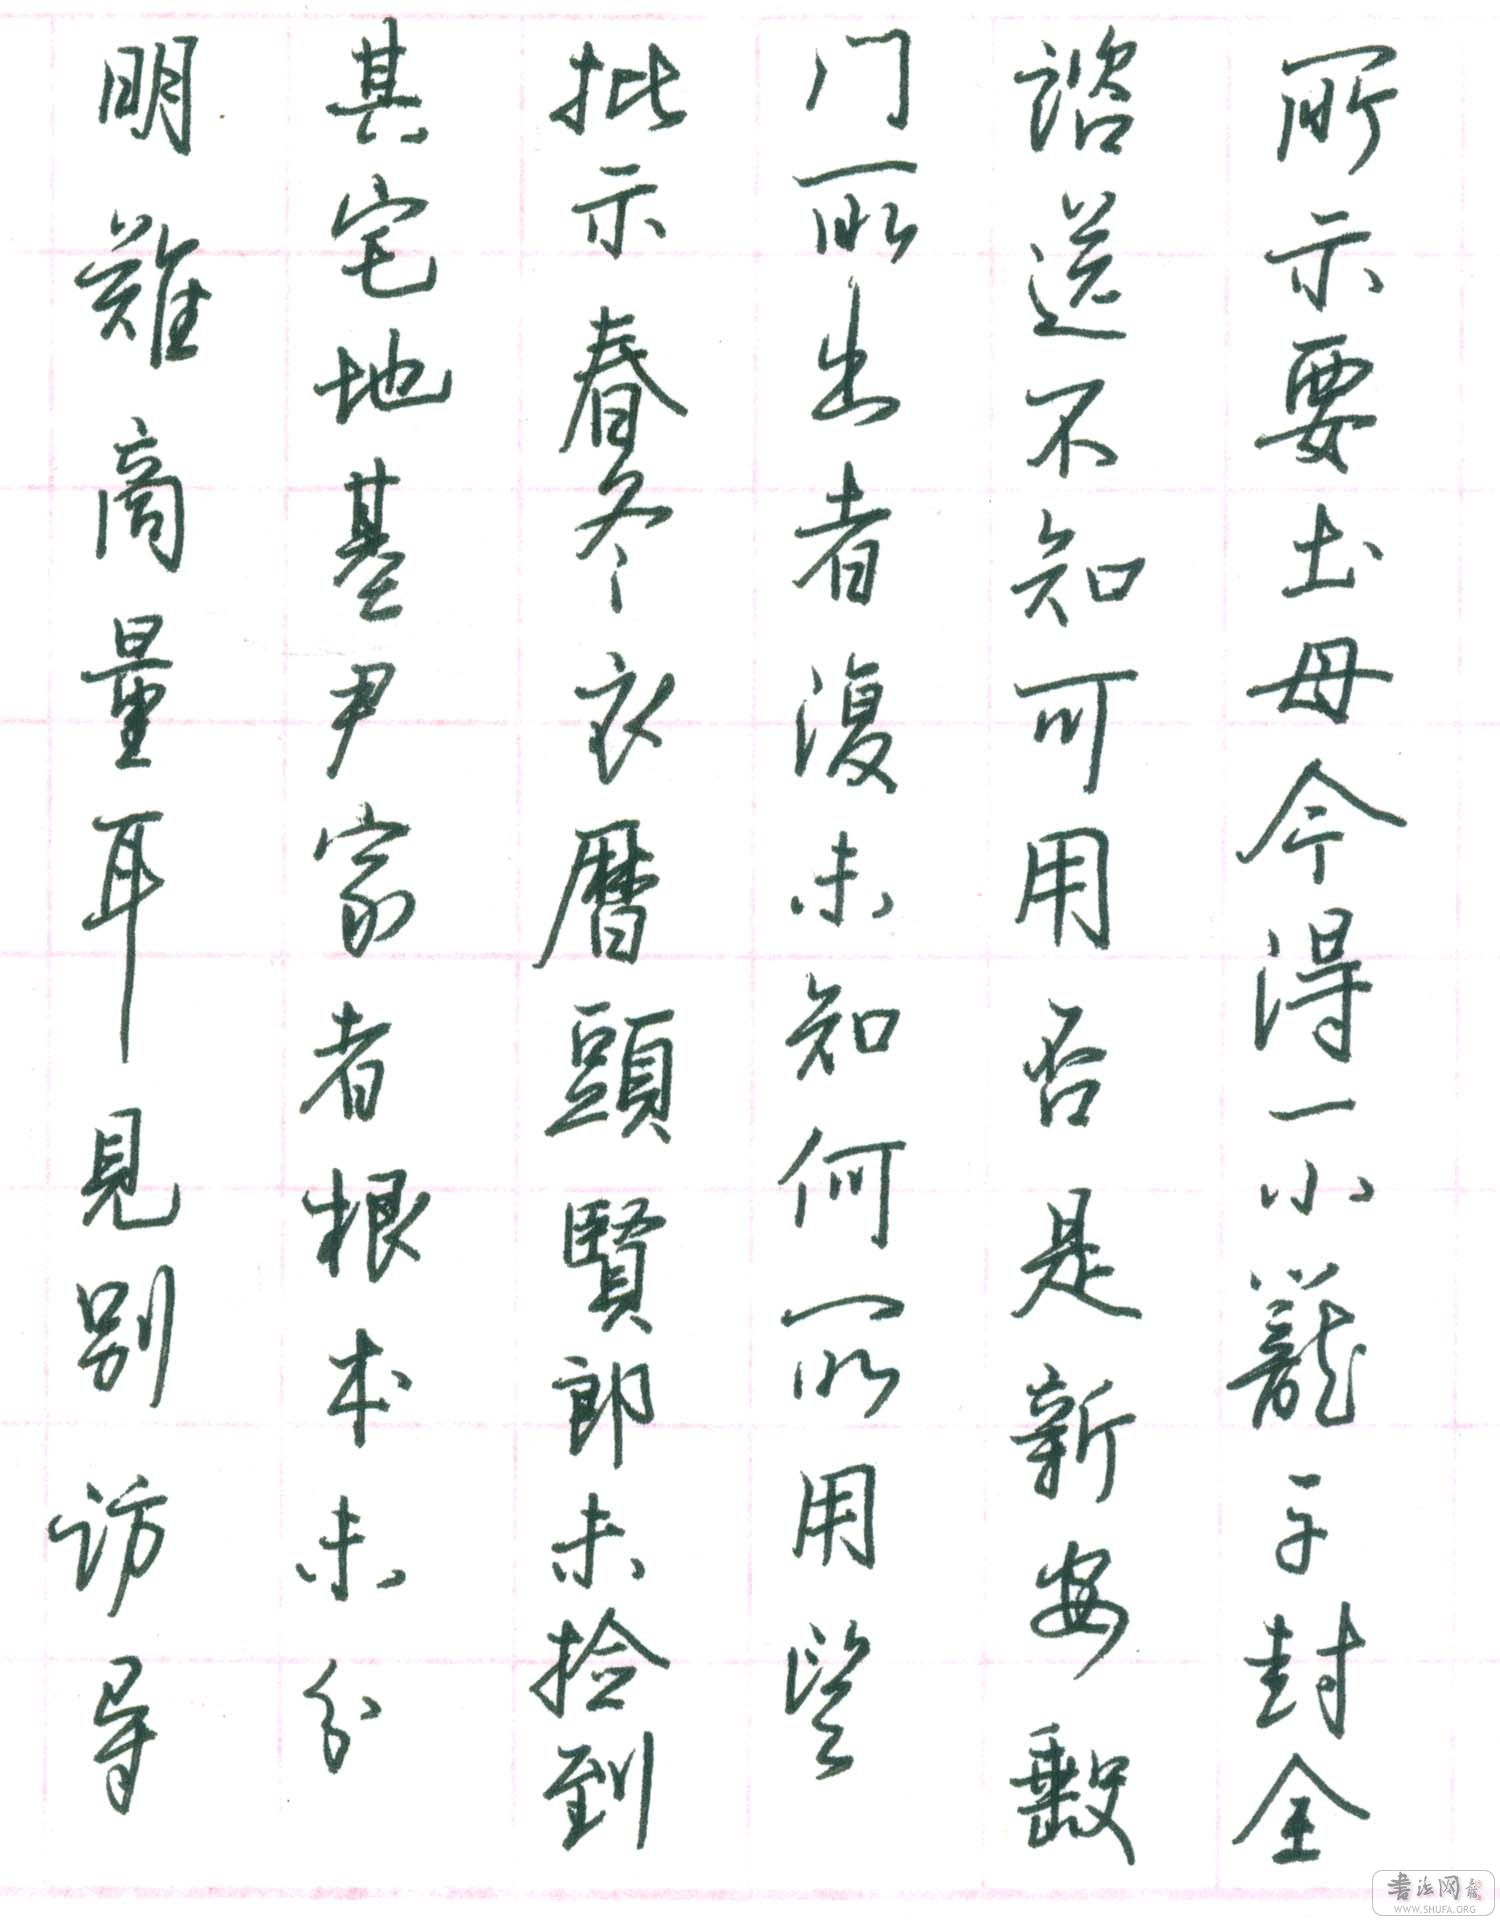 所示要土母今得一小籠子封全
諮送不知可用否是新安縠
门所出者復未知何所用望
批示春冬衣曆頭賢郎未捡到
其宅地基尹家者根本未分
明難商量耳見别访尋
書法网
WWW.SHUFA.ORG